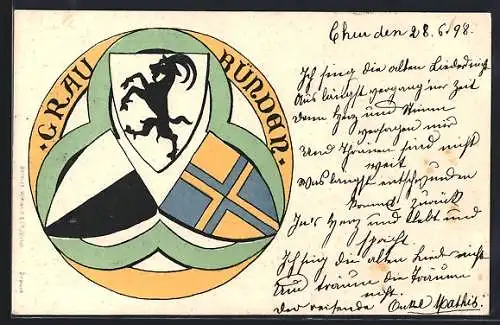 GRAU BÜNDEN
Chur den 28.6.98.
Ich sing die alten Lieder nicht
Aus längst vergangner Zeit
Denn Herz und Stimm
versagen mir
Und Thränen sind nicht
weit
Was längst entschwunden
kommt zurück
In's Herz und lebt und
spricht
Ich sing die alten Lieder nicht
Und träum die Träume
nicht.
Der reisende Onkel Mathis.